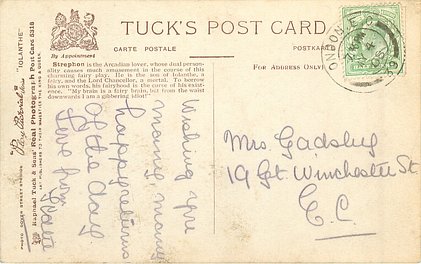 TUCK'S POST CARD
CARTE POSTALE
POSTKARTE
By Appointment
FOR ADDRESS ONLY
Strephon is the Arcadian lover, whose dual person-
ality causes much amusement in the course of this
charming fairy play. He is the son of Iolanthe, a
fairy, and the Lord Chancellor, a mortal. To borrow
his own words, his fairyhood is the curse of his exist-
ence. "My brain is a fairy brain, but from the waist
downwards I am a gibbering idiot!"
"IOLANTHE"
Raphael Tuck & Sons' Real Photograph Post Card 5318
PHOTO DOVER STREET STUDIOS
LONDON E.C.
Wishing you
many, many
happy returns
of the day.
Love from
Mrs. Gadsby
19 Gt. Winchester St.
E.C.